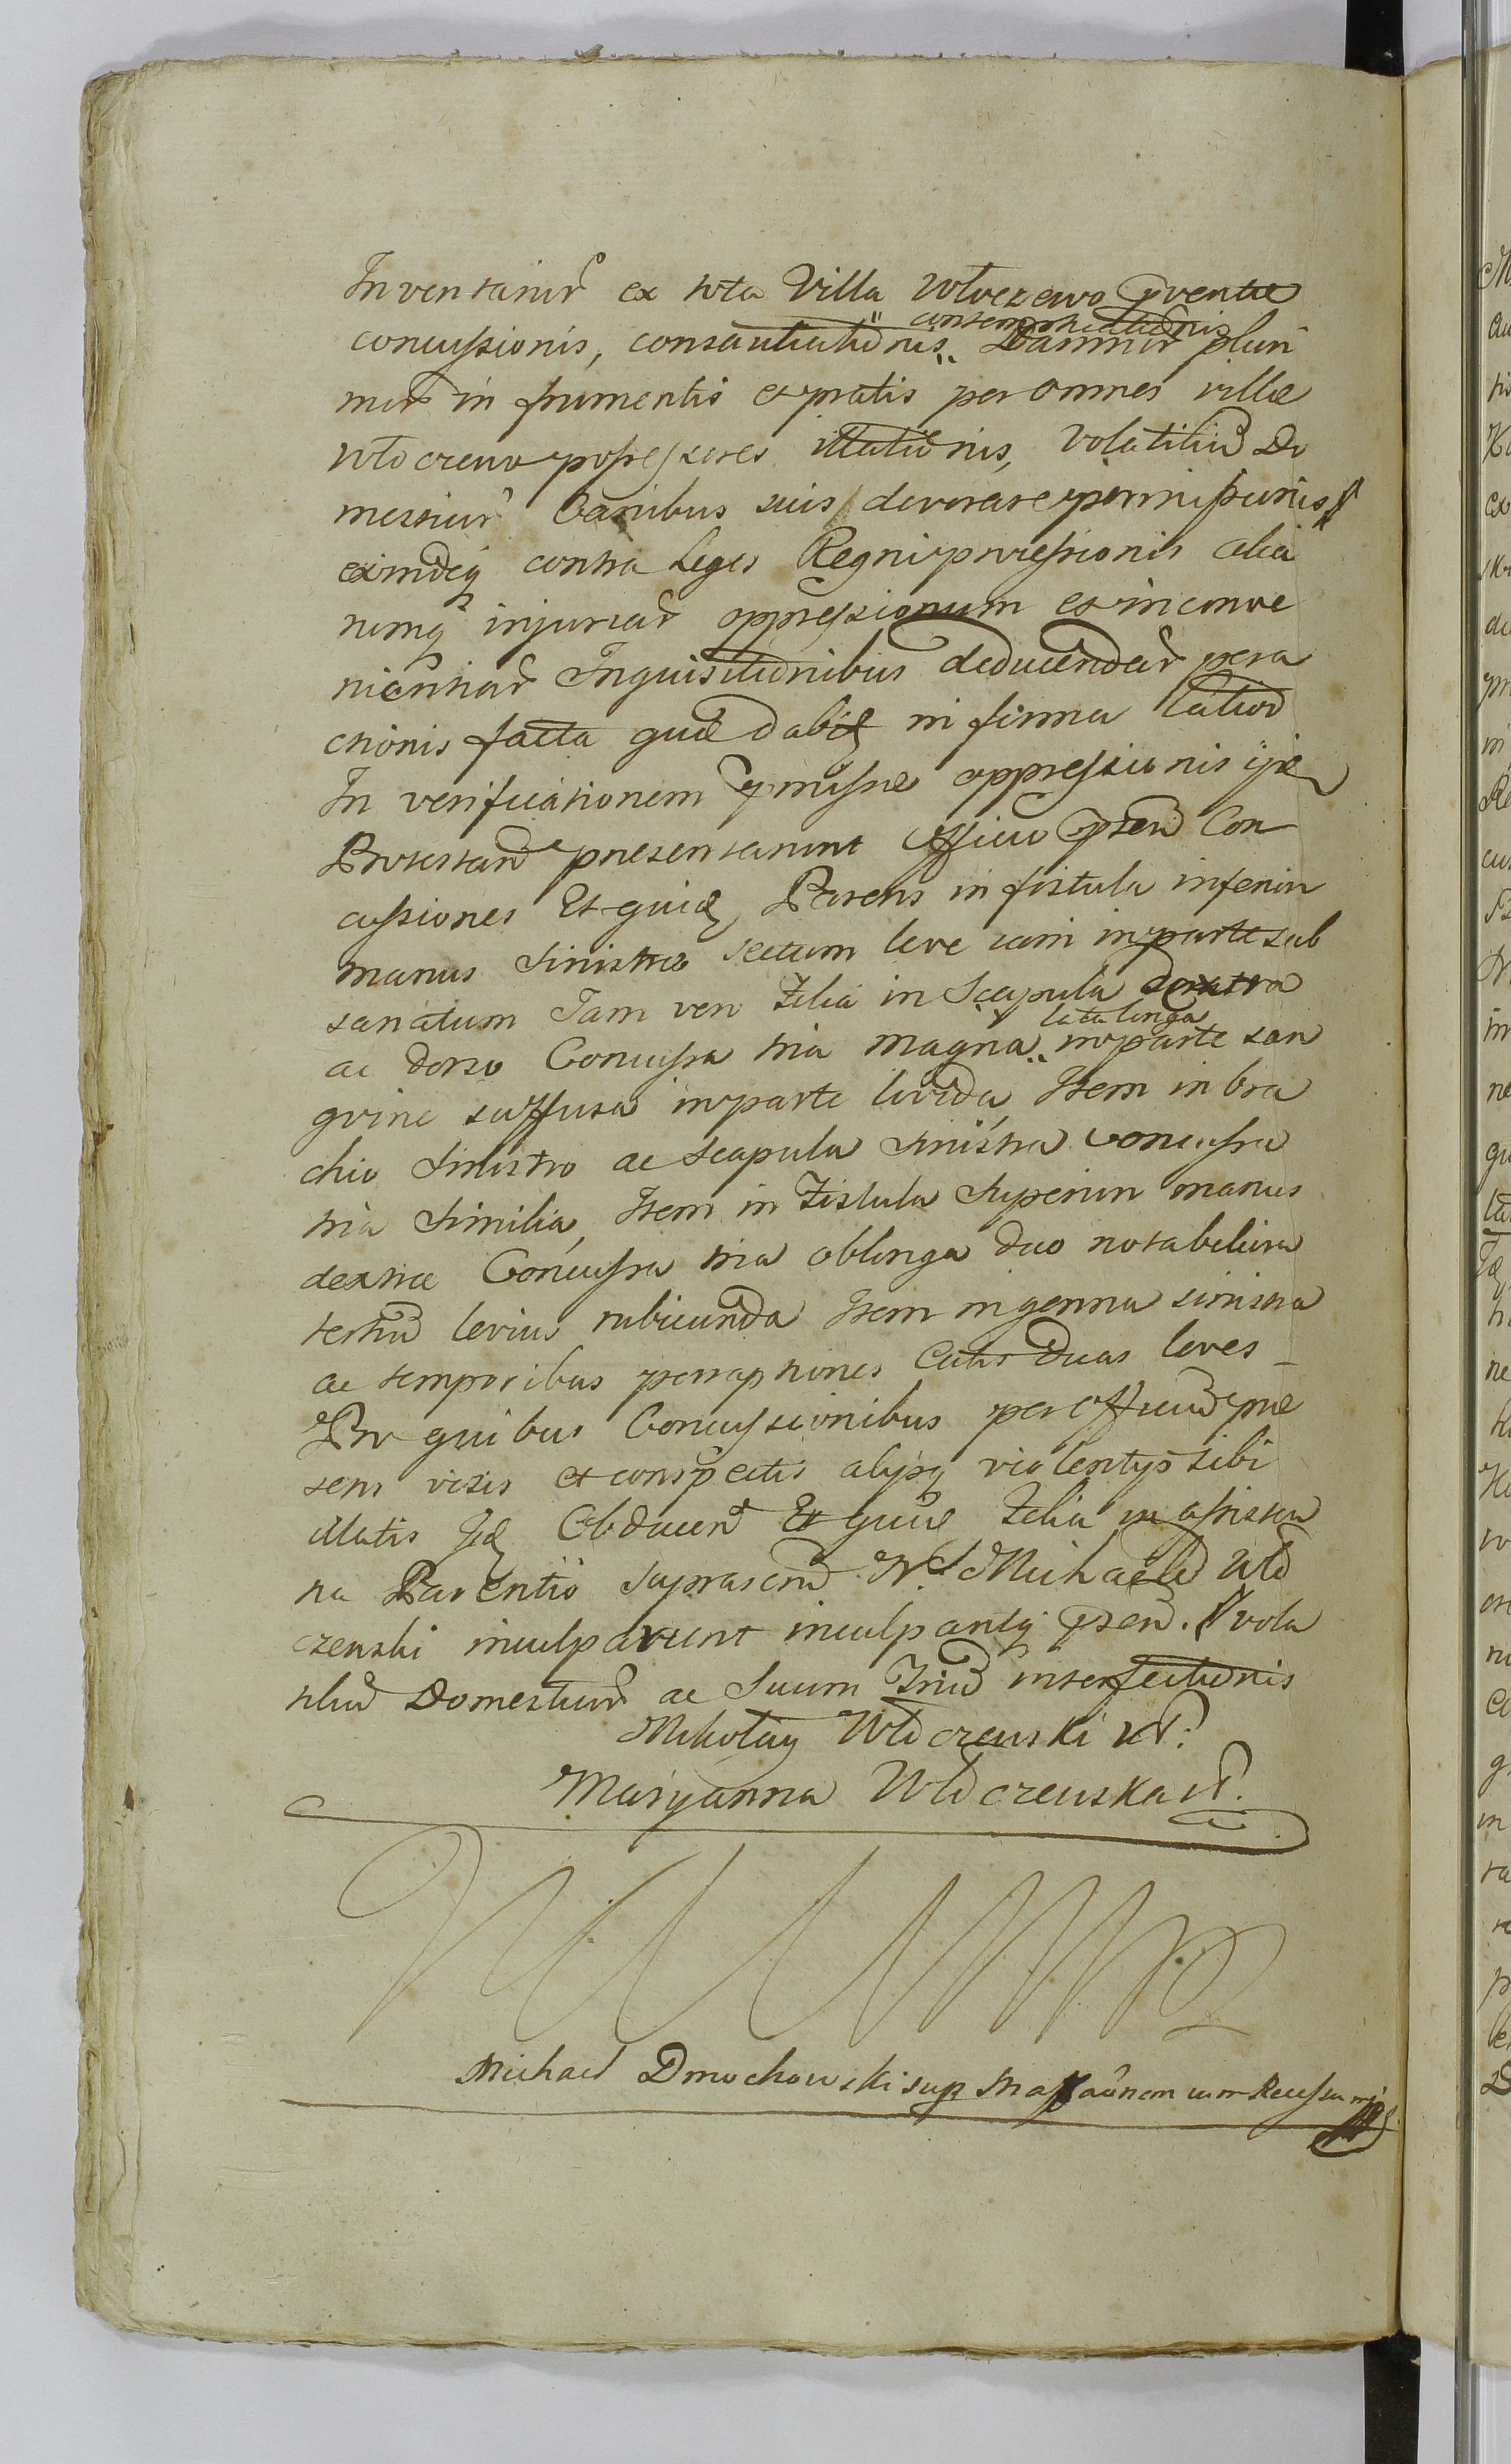 Inventariur ex tota Villa Włoczewo pventae
contemptuationis
concussionis, consauciationis Damnor pluri
mor in frumentis et pratis per omnes villae
Włoczewo possessores illationis, Volatiliu Do
mesticur Canibus suis devorare permissionis
eximdeq contra Leges Regni processionis alia
rumq injuriar oppressionum et inconve
nientiar Inquisitionibus deducendar pera
ctionis facta quae dabit in firma lation
In verificationem pmissae oppressionis ijd
Protestan praesentarunt Officio psen Con
cussiones Et quid Parens in fistula inferiori
manus sinistrae sectum leve iam in parte sub
sanatum Tam vero Filia in Scapula dextra
lata longa
ac dorso Concussa tria magna in parte san
gvine suffusa in parte livida Item in bra
chio sinistro ac scapula sinistra concussa
tria similia, Item in Fistula Superiori manus
dextrae Concussa tria oblonga duo notabiliora
tertiu levius rubicunda Item in genna sinistra
ac temporibus perraptiones Cutis duas leves
Pro quibus Concussionibus per officiu prae
sens visis et conspectis alijsq violentijs sibi
illatis Jid Obducen Et quid Filia in assisten
tia Parentis suprascrip N. Michaele Wło
czewski inculparunt inculpantq psen. vola
tiliu Domesticur ac Suum Triu interfectionis
Mikołay Włoczewski
Maryanna Włoczewska
Michael Dmochowski sup Ma aonem cum Recessu mp